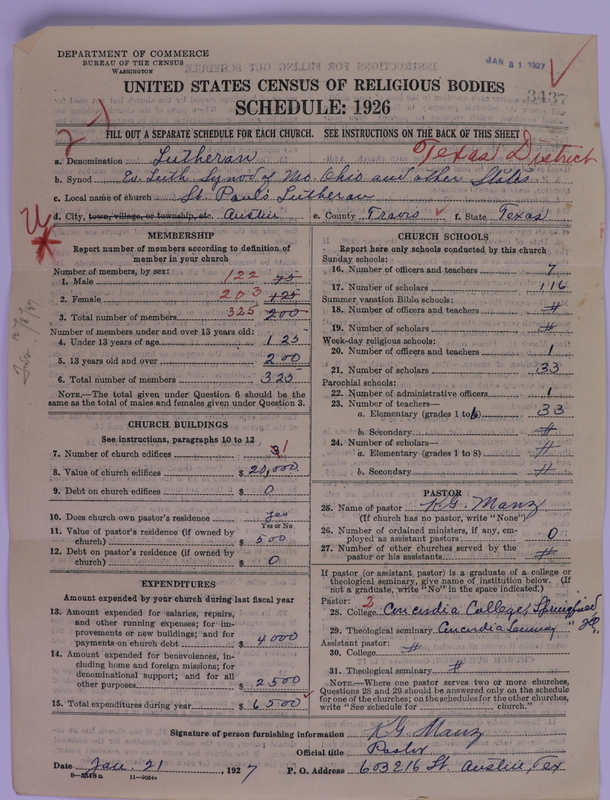 DEPARTMENT OF COMMERCE
BUREAU OF THE CENSUS
WASHINGTON
JAN 31 1927
3437
UNITED STATES CENSUS OF RELIGIOUS BODIES
SCHEDULE: 1926
2-1
FILL OUT A SEPARATE SCHEDULE FOR EACH CHURCH. SEE INSTRUCTIONS ON THE BACK OF THIS SHEET
Texas District
a. Denomination Lutheran
b. Synod Ev. Luth. Synod of Mo. Ohio and other States
c. Local name of church St. Paul's Lutheran
d. City, town, village, or township, etc. Austin e. County Travis f. State Texas
MEMBERSHIP
Report number of members according to definition of
member in your church
Number of members, by sex:
1. Male 122 75
2. Female 203 125
3. Total number of members 325 200
Number of members under and over 13 years old:
4. Under 13 years of age 125
5. 13 years old and over 200
6. Total number of members 325
NOTE.—The total given under Question 6 should be
the same as the total of males and females given under Question 3.
CHURCH BUILDINGS
See instructions, paragraphs 10 to 12
7. Number of church edifices 1
8. Value of church edifices $ 20,000
9. Debt on church edifices $ 0
10. Does church own pastor's residence yes
Yes or No
11. Value of pastor's residence (if owned by
church) $ 500
12. Debt on pastor's residence (if owned by
church) $ 0
EXPENDITURES
Amount expended by your church during last fiscal year
13. Amount expended for salaries, repairs,
and other running expenses; for im-
provements or new buildings; and for
payments on church debt $ 4000
14. Amount expended for benevolences, in-
cluding home and foreign missions; for
denominational support; and for all
other purposes $ 2500
15. Total expenditures during year $ 6500
CHURCH SCHOOLS
Report here only schools conducted by this church
Sunday schools:
16. Number of officers and teachers 7
17. Number of scholars 116
Summer vacation Bible schools:
18. Number of officers and teachers #
19. Number of scholars #
Week-day religious schools:
20. Number of officers and teachers 1
21. Number of scholars 33
Parochial schools:
22. Number of administrative officers 1
23. Number of teachers—
a. Elementary (grades 1 to 6) 33
b. Secondary #
24. Number of scholars—
a. Elementary (grades 1 to 8) #
b. Secondary #
PASTOR
25. Name of pastor K.G. Manz
(If church has no pastor, write "None")
26. Number of ordained ministers, if any, em-
ployed as assistant pastors 0
27. Number of other churches served by the
pastor or his assistants #
If pastor (or assistant pastor) is a graduate of a college or
theological seminary, give name of institution below. (If
not a graduate, write "No" in the space indicated.)
Pastor: 2
28. College Concordia College, Springfield
29. Theological seminary Concordia Seminary " Ill.
Assistant pastor:
30. College #
31. Theological seminary #
NOTE.—Where one pastor serves two or more churches,
Questions 28 and 29 should be answered only on the schedule
for one of the churches; on the schedules for the other churches,
write "See schedule for church."
Signature of person furnishing information K.G. Manz
Official title Pastor
Date Jan. 21, 1927 P. O. Address 603 216 St. Austin, Tex
8—5518a 11—9054a